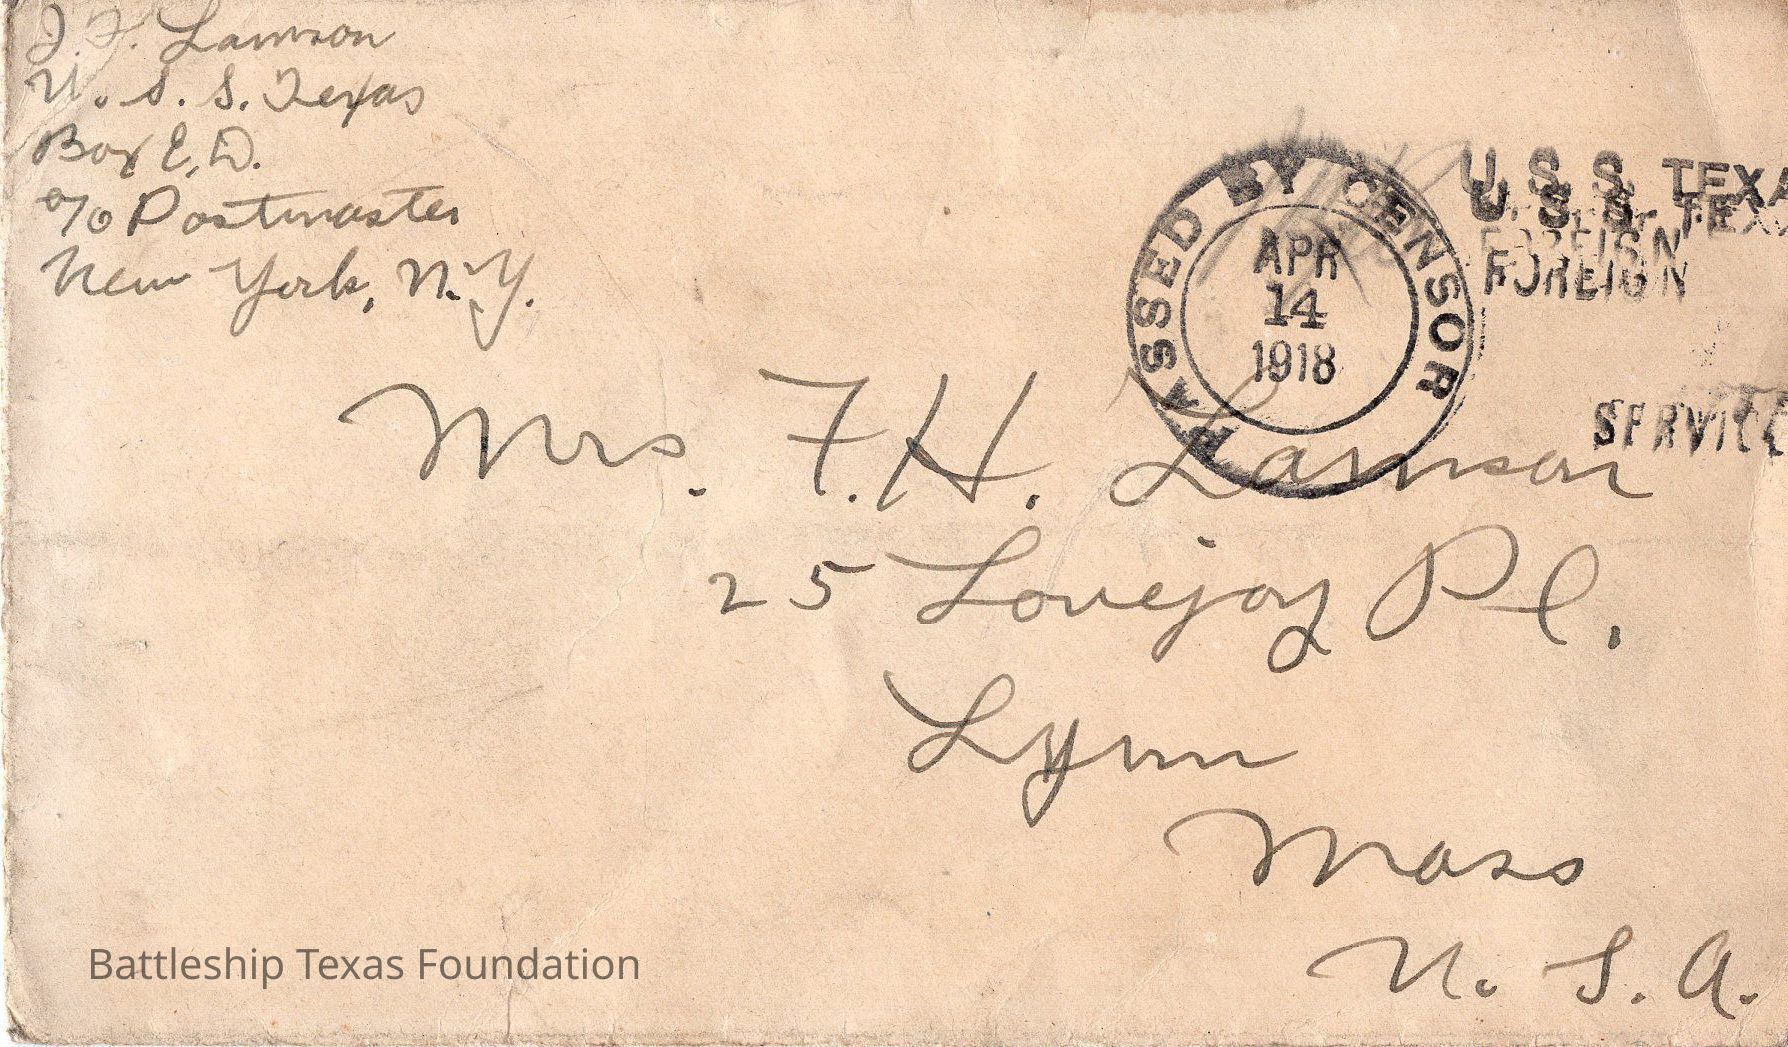 J. F. Lamson
U. S. S. Texas
Box E, D.
c/o Postmaster
New York, N. Y.
PASSED BY CENSOR
APR
14
1918
U. S. S. TEXA
U. S. S. TEX
FOREIGN
FOREIGN
SERVICE
Mrs. F. H. Lamson
25 Lovejoy Pl.
Lynn
Mass
U. S. A.
Battleship Texas Foundation